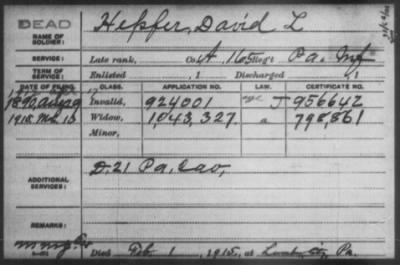 DEAD
NAME OF SOLDIER: Hepfer, David L
SERVICE: Late rank, Co. A, 165 Reg't Pa. Inf
TERM OF SERVICE: Enlisted , 1 Discharged , 1
DATE OF FILING. CLASS. APPLICATION NO. LAW. CERTIFICATE NO.
1890, Aug 9 Invalid, 924001 J 956642
1915 Widow, 1043,327 a 798,861
Minor,
ADDITIONAL SERVICES: D. 21 Pa. Cav,
REMARKS:
Died Feb 1, 1915, at Pa.